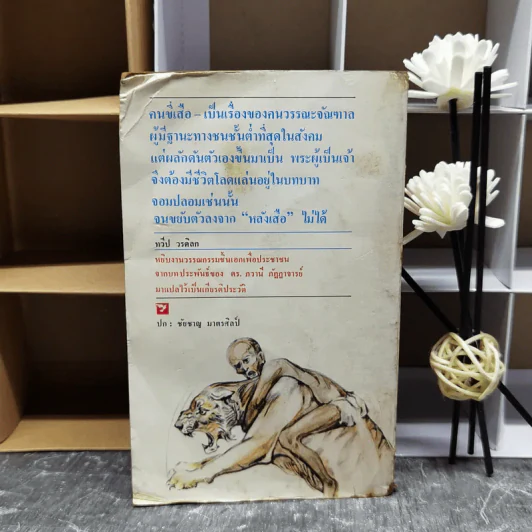 คนขี่เสือ – เป็นเรื่องของคนวรรณะจัณฑาล
ผู้มีฐานะทางชนชั้นต่ำที่สุดในสังคม
แต่ผลักดันตัวเองขึ้นมาเป็น พระผู้เป็นเจ้า
จึงต้องมีชีวิตโลดแล่นอยู่ในบทบาท
จอมปลอมเช่นนั้น
จนขยับตัวลงจาก “หลังเสือ” ไม่ได้
ทวีป วรดิลก
หยิบงานวรรณกรรมชั้นเอกเพื่อประชาชน
จากบทประพันธ์ของ ดร. ภวานี ภัฏฏาจารย์
มาแปลไว้เป็นเกียรติประวัติ
ปก : ชัยชาญ มาตรศิลป์